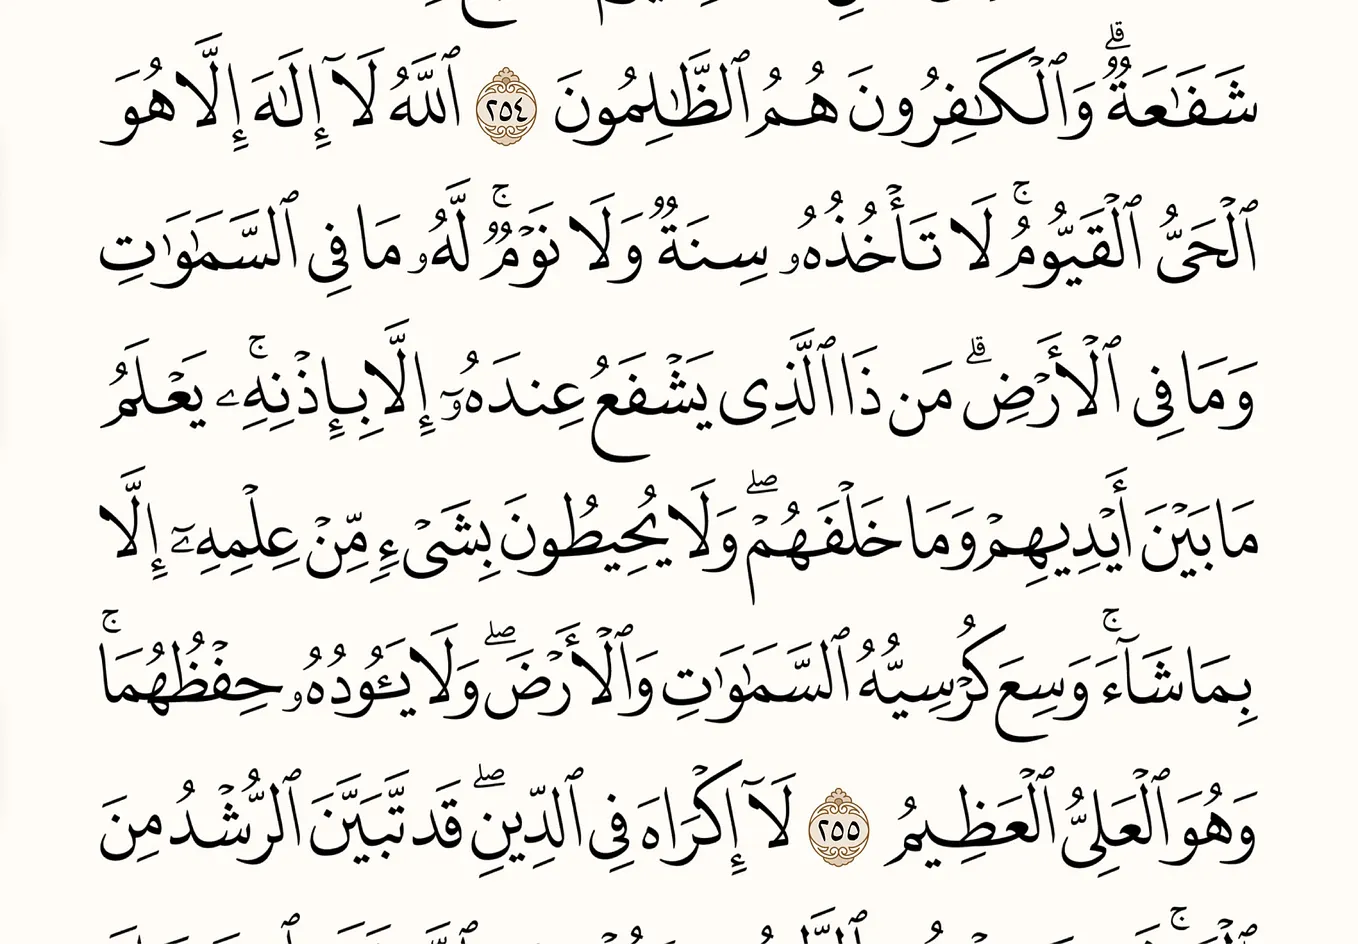 شَفَٰعَةٌۭ ۗ وَٱلْكَٰفِرُونَ هُمُ ٱلظَّٰلِمُونَ ٢٥٤ ٱللَّهُ لَآ إِلَٰهَ إِلَّا هُوَ
ٱلْحَىُّ ٱلْقَيُّومُ ۚ لَا تَأْخُذُهُۥ سِنَةٌۭ وَلَا نَوْمٌۭ ۚ لَّهُۥ مَا فِى ٱلسَّمَٰوَٰتِ
وَمَا فِى ٱلْأَرْضِ ۗ مَن ذَا ٱلَّذِى يَشْفَعُ عِندَهُۥٓ إِلَّا بِإِذْنِهِۦ ۚ يَعْلَمُ
مَا بَيْنَ أَيْدِيهِمْ وَمَا خَلْفَهُمْ ۖ وَلَا يُحِيطُونَ بِشَىْءٍۢ مِّنْ عِلْمِهِۦٓ إِلَّا
بِمَا شَآءَ ۚ وَسِعَ كُرْسِيُّهُ ٱلسَّمَٰوَٰتِ وَٱلْأَرْضَ ۖ وَلَا يَـُٔودُهُۥ حِفْظُهُمَا ۚ
وَهُوَ ٱلْعَلِىُّ ٱلْعَظِيمُ ٢٥٥ لَآ إِكْرَاهَ فِى ٱلدِّينِ ۖ قَد تَّبَيَّنَ ٱلرُّشْدُ مِنَ